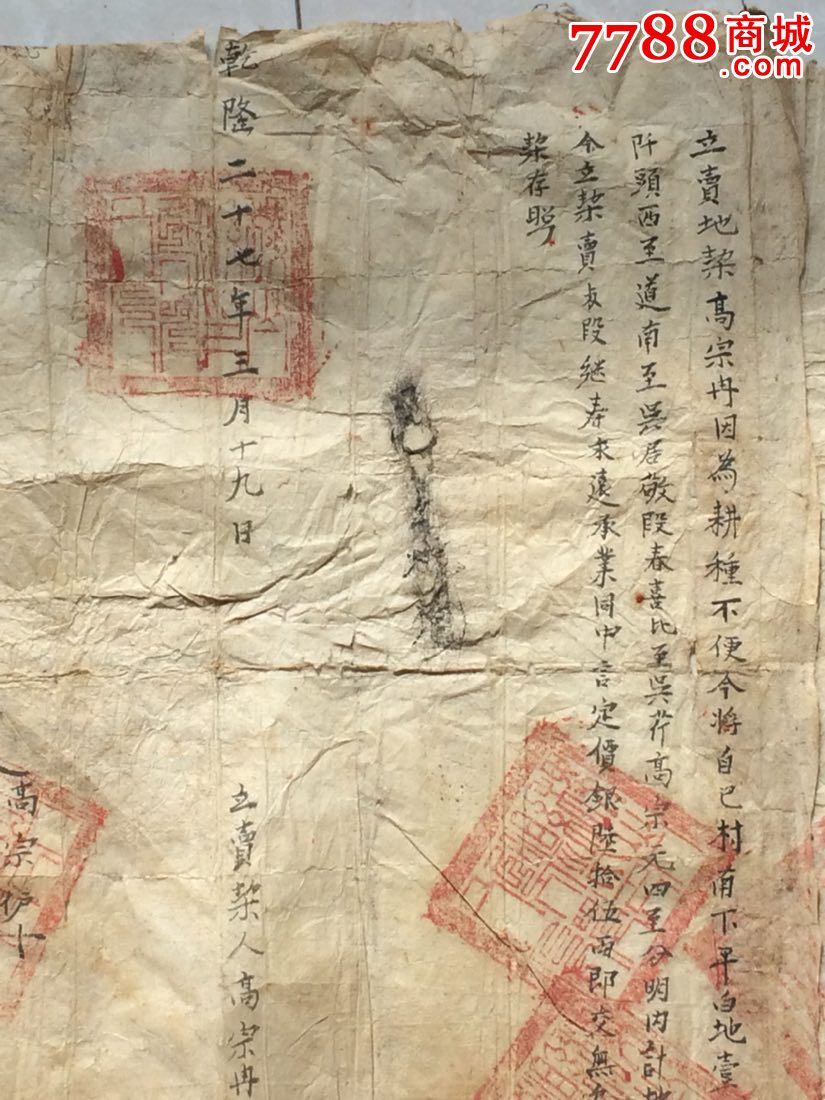 立賣地契高宗冉因為耕種不便今將自己村南下平白地壹
阡頭西至道南至吳居敬段春喜北至吳芹高宗元四至分明內計地
今立契賣段繼春永遠承業同中言定價銀陸拾伍兩即交無
契存照
立賣契人高宗冉
乾隆二十七年三月十九日
高宗
7788商城
.com